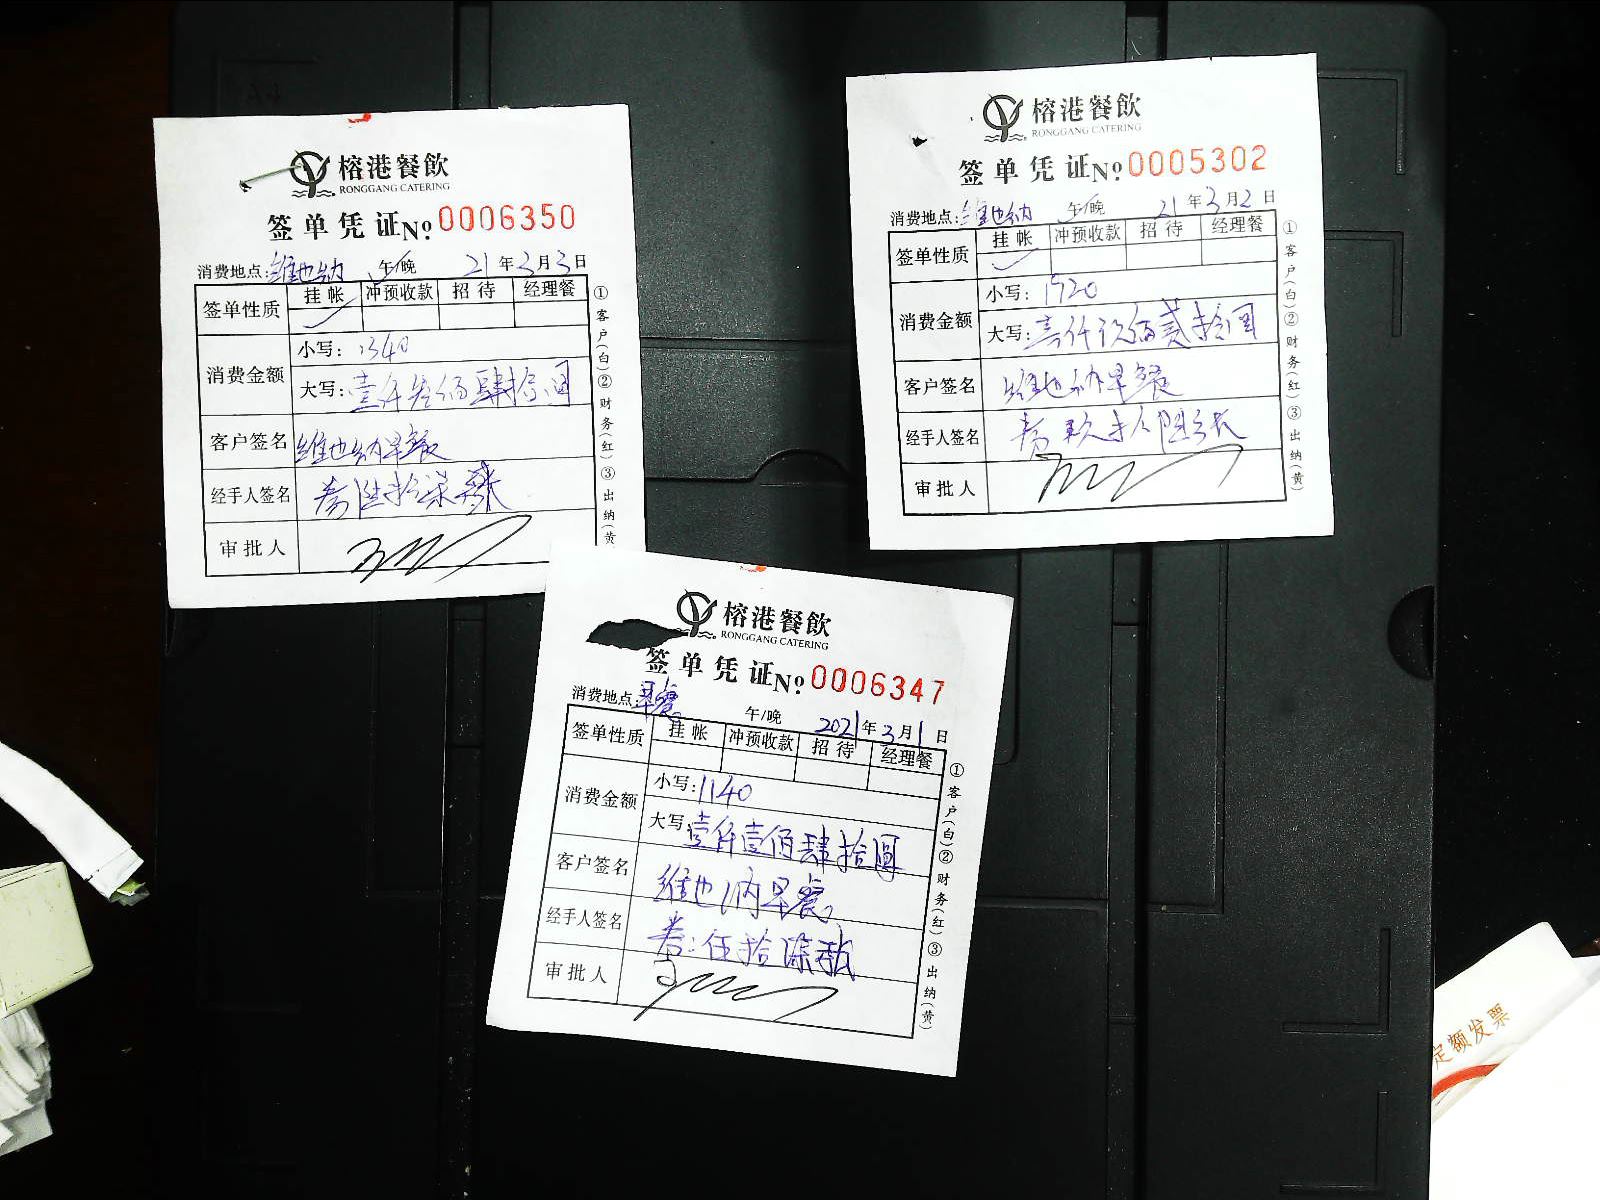 榕港餐飲
RONGGANG CATERING
签单凭证 No 0006350
消费地点:维也纳 午/晚 21年3月3日
签单性质 挂帐 冲预收款 招待 经理餐
消费金额
小写:1340
大写:壹仟叁佰肆拾圆
客户签名 维也纳早餐
经手人签名
审批人
①客户(白)②财务(红)③出纳(黄
榕港餐飲
RONGGANG CATERING
签单凭证 No 0005302
消费地点:维也纳 午/晚 21年3月2日
签单性质 挂帐 冲预收款 招待 经理餐
消费金额
小写:1920
大写:壹仟玖佰贰拾圆
客户签名 维也纳早餐
经手人签名
审批人
①客户(白)②财务(红)③出纳(黄)
榕港餐飲
RONGGANG CATERING
签单凭证 No 0006347
消费地点:早餐 午/晚 2021年3月1日
签单性质 挂帐 冲预收款 招待 经理餐
消费金额
小写:1140
大写:壹仟壹佰肆拾圆
客户签名 维也纳早餐
经手人签名 券:伍拾柒张
审批人
①客户(白)②财务(红)③出纳(黄)
定额发票